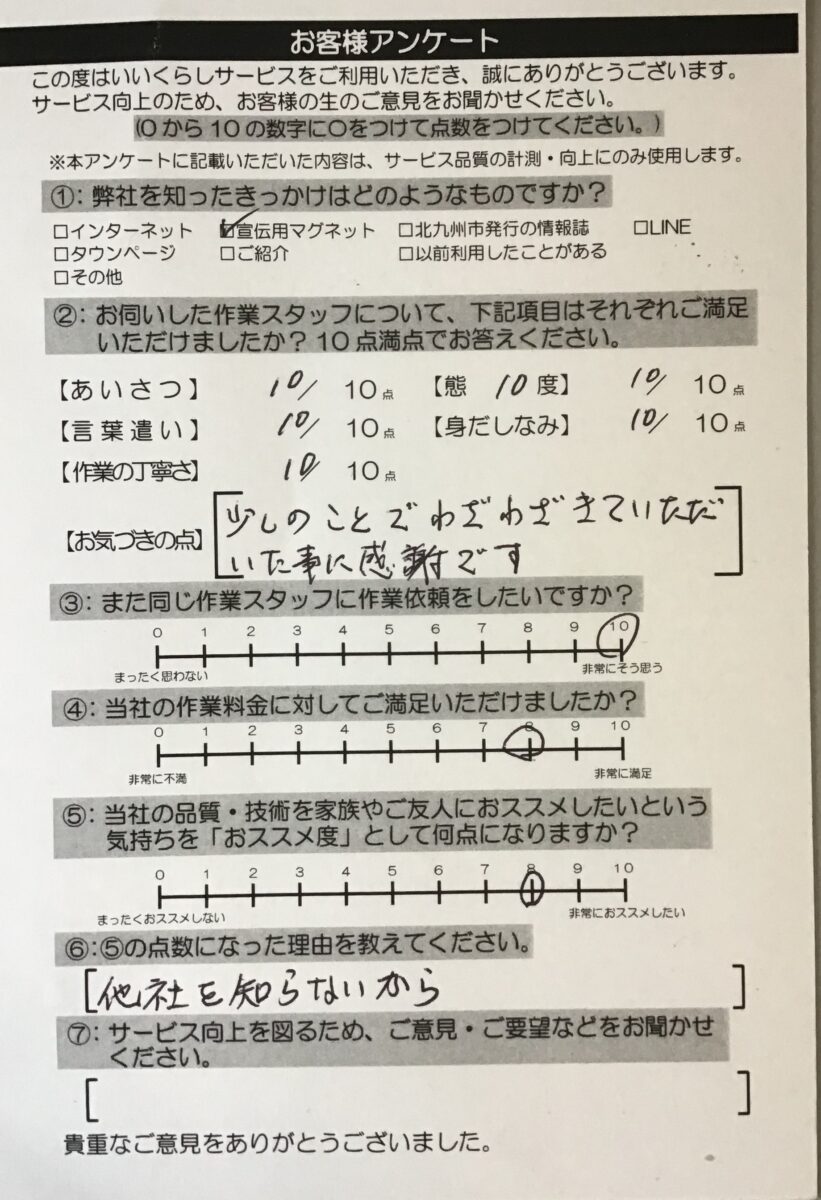 お客様アンケート
この度はいいくらしサービスをご利用いただき、誠にありがとうございます。
サービス向上のため、お客様の生のご意見をお聞かせください。
(0から10の数字に〇をつけて点数をつけてください。)
※本アンケートに記載いただいた内容は、サービス品質の計測・向上にのみ使用します。
①：弊社を知ったきっかけはどのようなものですか？
□インターネット ☑宣伝用マグネット □北九州市発行の情報誌 □LINE
□タウンページ □ご紹介 □以前利用したことがある
□その他
②：お伺いした作業スタッフについて、下記項目はそれぞれご満足
いただけましたか？10点満点でお答えください。
【あいさつ】 10/ 10点 【態 10 度】 10/ 10点
【言葉遣い】 10/ 10点 【身だしなみ】 10/ 10点
【作業の丁寧さ】 10/ 10点
【お気づきの点】 少しのことでわざわざきていただ
いた事に感謝です
③：また同じ作業スタッフに作業依頼をしたいですか？
0 1 2 3 4 5 6 7 8 9 10
まったく思わない 非常にそう思う
④：当社の作業料金に対してご満足いただけましたか？
0 1 2 3 4 5 6 7 8 9 10
非常に不満 非常に満足
⑤：当社の品質・技術を家族やご友人におススメしたいという
気持ちを「おススメ度」として何点になりますか？
0 1 2 3 4 5 6 7 8 9 10
まったくおススメしない 非常におススメしたい
⑥：⑤の点数になった理由を教えてください。
他社を知らないから
⑦：サービス向上を図るため、ご意見・ご要望などをお聞かせ
ください。
貴重なご意見をありがとうございました。